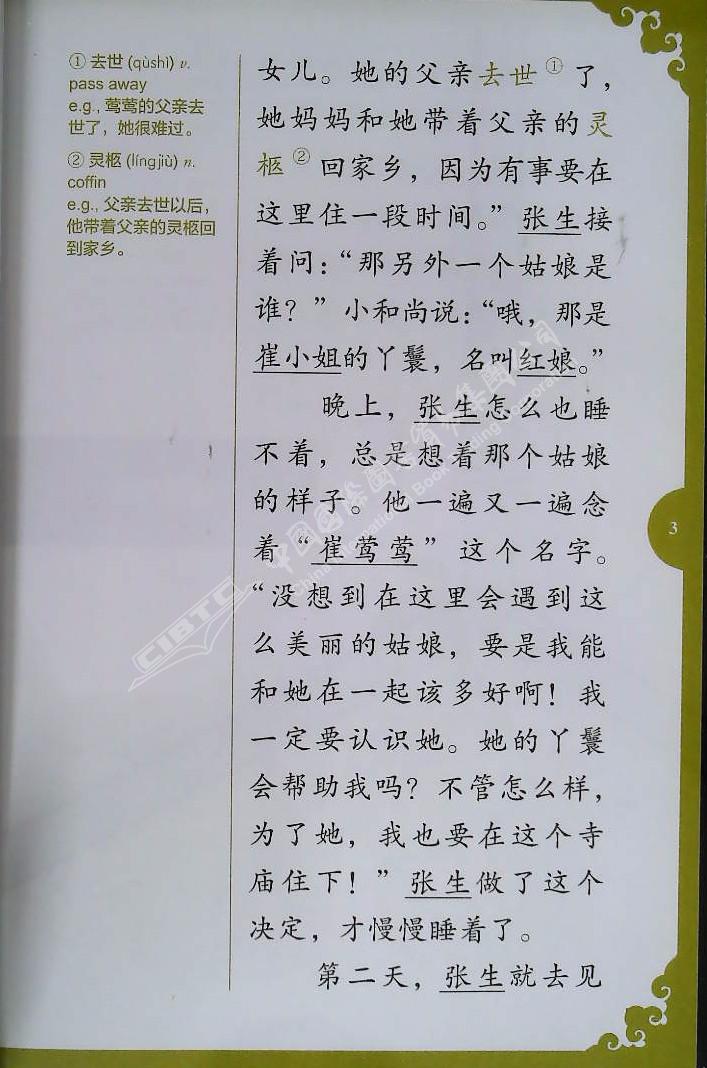 ① 去世 (qùshì) v.
pass away
e.g., 莺莺的父亲去
世了，她很难过。
② 灵柩 (língjiù) n.
coffin
e.g., 父亲去世以后，
他带着父亲的灵柩回
到家乡。
女儿。她的父亲去世①了，
她妈妈和她带着父亲的灵
柩②回家乡，因为有事要在
这里住一段时间。”张生接
着问：“那另外一个姑娘是
谁？”小和尚说：“哦，那是
崔小姐的丫鬟，名叫红娘。”
晚上，张生怎么也睡
不着，总是想着那个姑娘
的样子。他一遍又一遍念
着“崔莺莺”这个名字。
“没想到在这里会遇到这
么美丽的姑娘，要是我能
和她在一起该多好啊！我
一定要认识她。她的丫鬟
会帮助我吗？不管怎么样，
为了她，我也要在这个寺
庙住下！”张生做了这个
决定，才慢慢睡着了。
第二天，张生就去见
3
CIBTC
中国国际图书贸易集团公司
China International Book Trading Corporation